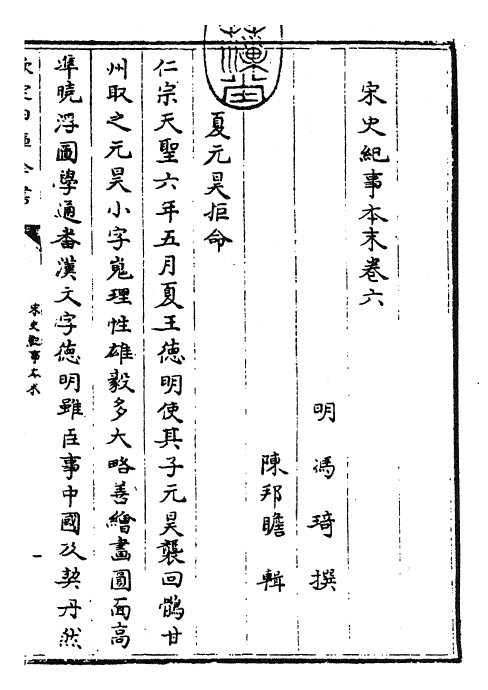 宋史紀事本末卷六
明 馮琦 撰
陳邦瞻 輯
夏元昊拒命
仁宗天聖六年五月夏王德明使其子元昊襲回鶻甘
州取之元昊小字嵬理性雄毅多大略善繪畫圓面高
準曉浮圖學通番漢文字德明雖臣事中國及契丹然
欽定四庫全書
宋史紀事本末
一